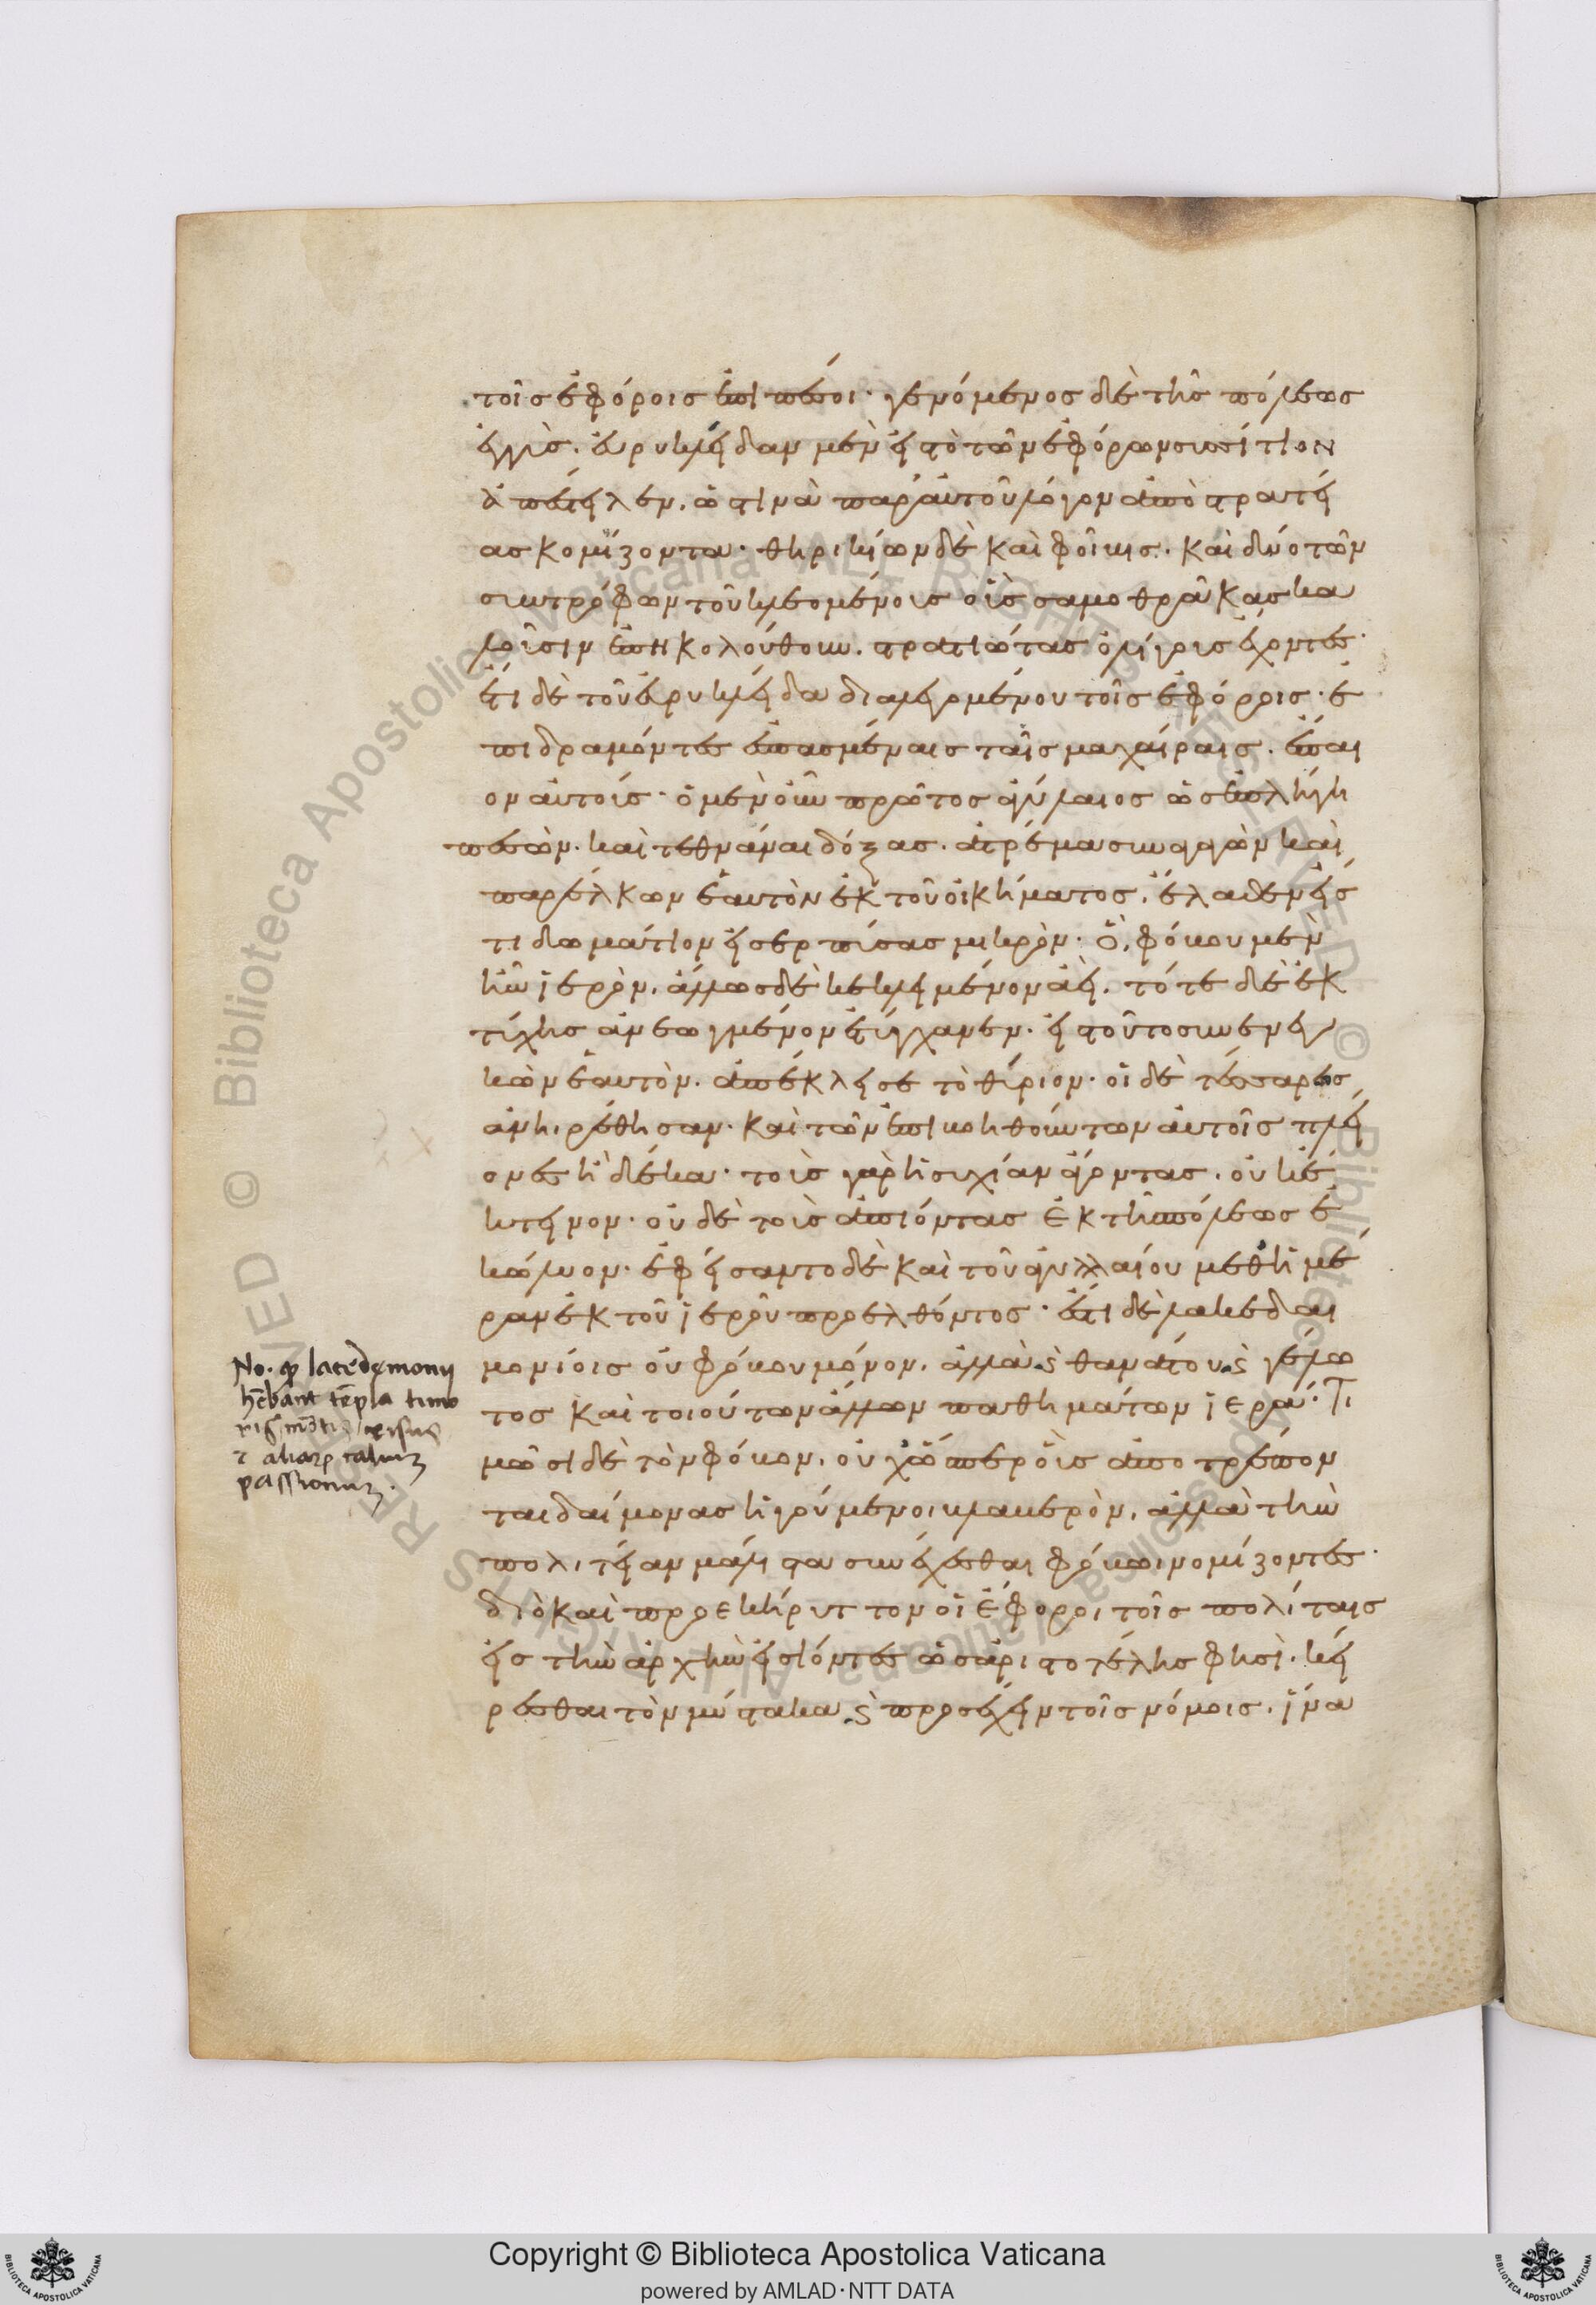 τοῖς ἐφόροις ἐπιπέσοι· γενόμενος δὲ τῆς πόλεως
ἐγγὺς. ἐυρυκλείδαν μὲν εἰς τὸ τῶν ἐφόρων συσσίτιον
ἀπέστειλεν, ὥς τινὰ παρ' ἀυτοῦ λόγον ἀπὸ στρατεί
ας κομίζοντα· θηρικίων δὲ καὶ φοῖβις. καὶ δύο τῶν
συντρόφων τοῦ κλεομένους οὓς σαμοθράκας κα
λοῦσιν ἐπηκολούθουν. στρατιώτας ὀλίγους ἔχοντες·
ἔτι δὲ τοῦ ἐυρυκλείδα διαλεγομένου τοῖς ἐφόροις· ἐ
πιδραμόντες ἐσπασμέναις ταῖς μαχαίραις. ἔπαι
ον ἀυτούς· ὁ μὲν οὖν πρῶτος ἀγύλαιος ὡς ἐπλήγη
πεσὼν. καὶ τεθνάναι δόξας. ἀτρέμα συναγαγὼν καὶ
παρέλκων ἑαυτὸν ἐκ τοῦ οἰκήματος, ἔλαθεν εἴς
τι δωμάτιον εἰσερπύσας μικρὸν· ὃ, φόβου μὲν
ἦν ἱερὸν, ἄλλως δὲ κεκλειμένον ἀεὶ. τότε δὲ ἐκ
τύχης ἀνεωγμένον ἐτύγχανεν· εἰς τοῦτο συνενεγ
κὼν ἑαυτὸν. ἀπέκλεισε τὸ θύριον· οἱ δὲ τέσσαρες
ἀνηιρέθησαν· καὶ τῶν ἐπιβοηθούντων ἀυτοῖς πλεί
ονες ἢ δέκα· τοὺς γὰρ ἡσυχίαν ἄγοντας, οὐκ ἔ
κτεινον· οὐδὲ τοὺς ἀπιόντας ἐκ τῆς πόλεως ἐ
κώλυον· ἐφείσαντο δὲ καὶ τοῦ ἀγυλαίου μεθ' ἡμέ
ραν ἐκ τοῦ ἱεροῦ προελθόντος· ἔστι δὲ λακεδαι
μονίοις οὐ φόβου μόνον, ἀλλὰ ϗ θανάτου ϗ γέλω
τος καὶ τοιούτων ἄλλων παθημάτων ἱερά· Τι
μῶσι δὲ τὸν φόβον, οὐχ ὥσπερ οὓς ἀποτρέπον
ται δαίμονας ἡγούμενοι βλαβερὸν, ἀλλὰ τὴν
πολιτείαν μάλιστα συνέχεσθαι φόβωι νομίζοντες·
διὸ καὶ προεκήρυττον οἱ ἔφοροι τοῖς πολίταις
εἰς τὴν ἀρχὴν εἰσιόντες ὡς ἀριστοτέλης φησὶ. κεί
ρεσθαι τὸν μύστακα ϗ προσέχειν τοῖς νόμοις, ἵνα
No. φ lacedemonij
hēbant tēpla timo
ris mortis risus
et aliarum talium
passionum.
© Biblioteca Apostolica Vaticana ALL RIGHTS RESERVED
Copyright © Biblioteca Apostolica Vaticana
powered by AMLAD·NTT DATA